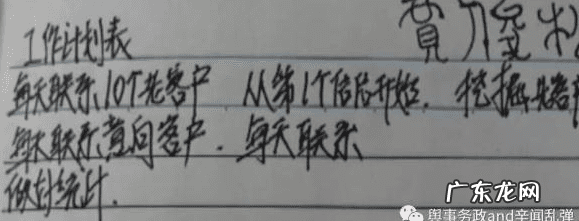 工作计划表
每天联系10个老客户 从第1个信后开始. 挖掘老客户
每天联系意向客户. 每天联系
做好统计.
广东龙网
舆事务政and辛闻乱弹